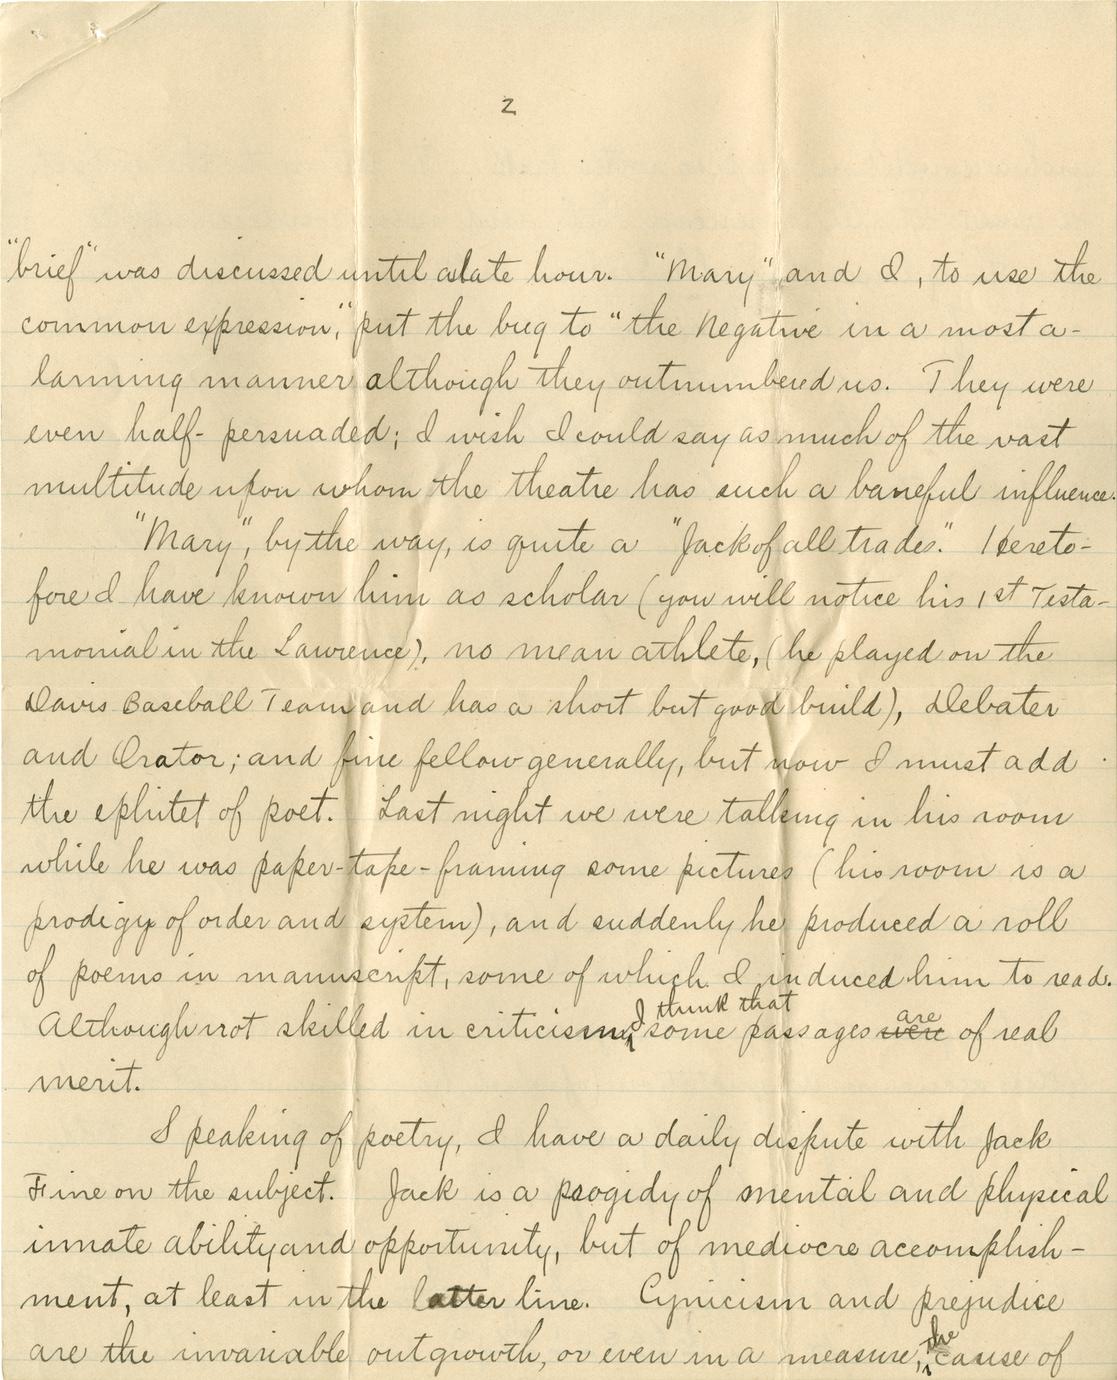 2
"brief" was discussed until a late hour. "Mary" and I, to use the
common expression," put the bug to "the Negative in a most a-
larming manner although they outnumbered us. They were
even half- persuaded; I wish I could say as much of the vast
multitude upon whom the theatre has such a baneful influence.
"Mary", by the way, is quite a "Jack of all trades." Hereto-
fore I have known him as scholar (you will notice his 1st Testa-
monial in the Lawrence), no mean athlete, (he played on the
Davis Baseball Team and has a short but good build), Debater
and Orator; and fine fellow generally, but now I must add
the ephitet of poet. Last night we were talking in his room
while he was paper-tape-framing some pictures (his room is a
prodigy of order and system), and suddenly he produced a roll
of poems in manuscript, some of which I induced him to read.
Although not skilled in criticism, I think that some passages were are of real
merit.
Speaking of poetry, I have a daily dispute with Jack
Fine on the subject. Jack is a progidy of mental and physical
innate ability and opportunity, but of mediocre accomplish-
ment, at least in the latter line. Cynicism and prejudice
are the invariable outgrowth, or even in a measure, the cause of